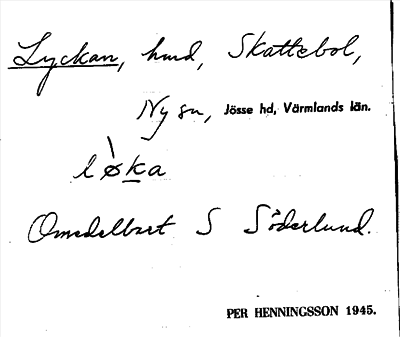 Lyckan, hmd, Skattebol,
Ny sn, Jösse hd, Värmlands län.
lø̀ka
Omedelbart S Söderlund.
PER HENNINGSSON 1945.